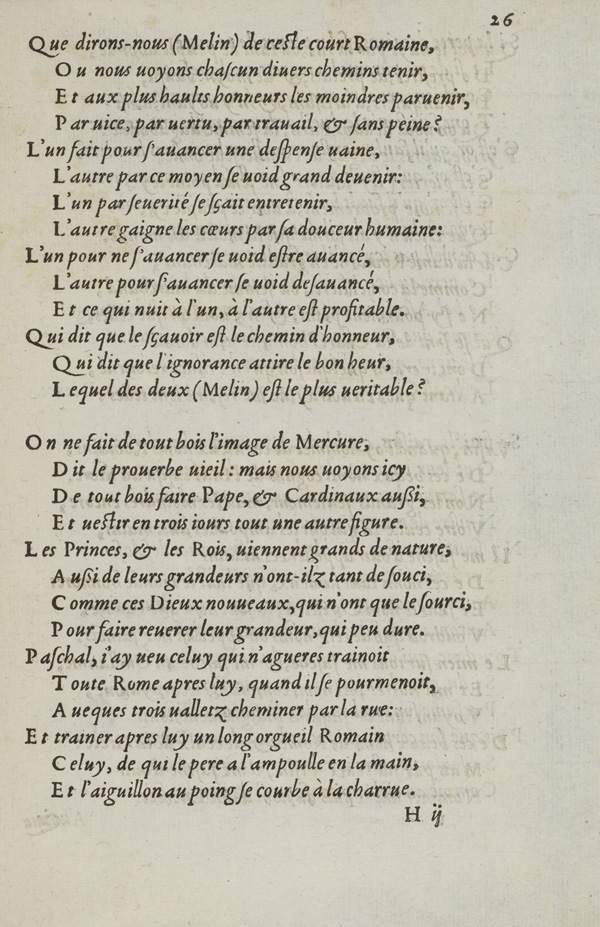 26
Que dirons-nous (Melin) de ceſte court Romaine,
Ou nous uoyons chaſcun diuers chemins tenir,
Et aux plus haults honneurs les moindres paruenir,
Par uice, par uertu, par trauail, & ſans peine?
L'un fait pour ſ'auancer une deſpenſe uaine,
L'autre par ce moyen ſe uoid grand deuenir:
L'un par ſeuerité ſe ſçait entretenir,
L'autre gaigne les cœurs par ſa douceur humaine:
L'un pour ne ſ'auancer ſe uoid eſtre auancé,
L'autre pour ſ'auancer ſe uoid deſauancé,
Et ce qui nuit à l'un, à l'autre eſt profitable.
Qui dit que le ſçauoir eſt le chemin d'honneur,
Qui dit que l'ignorance attire le bon heur,
Lequel des deux (Melin) eſt le plus ueritable?
On ne fait de tout bois l'image de Mercure,
Dit le prouerbe uieil: mais nous uoyons icy
De tout bois faire Pape, & Cardinaux auſsi,
Et ueſtir en trois iours tout une autre figure.
Les Princes, & les Rois, uiennent grands de nature,
Auſsi de leurs grandeurs n'ont-ilz tant de ſouci,
Comme ces Dieux nouueaux, qui n'ont que le ſourci,
Pour faire reuerer leur grandeur, qui peu dure.
Paſchal, i'ay ueu celuy qui n'agueres trainoit
Toute Rome apres luy, quand il ſe pourmenoit,
Aueques trois ualletz cheminer par la rue:
Et trainer apres luy un long orgueil Romain
Celuy, de qui le pere a l'ampoulle en la main,
Et l'aiguillon au poing ſe courbe à la charrue.
H ij